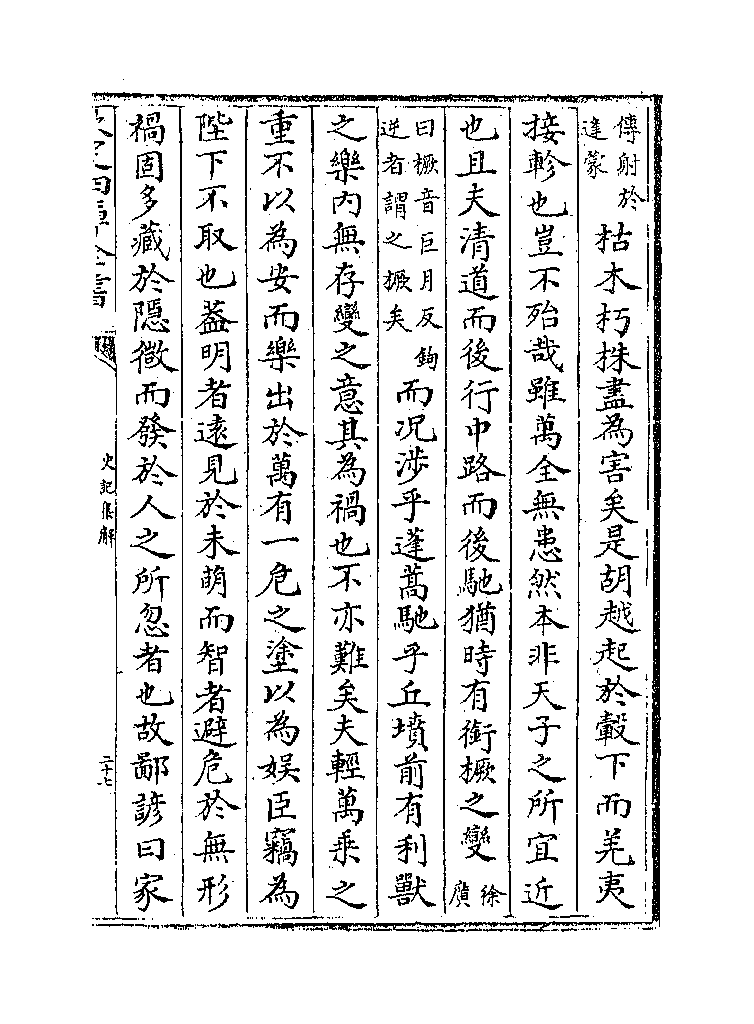 傳射於逢蒙枯木朽株盡為害矣是胡越起於轂下而羌夷
接軫也豈不殆哉雖萬全無患然本非天子之所宜近
也且夫清道而後行中路而後馳猶時有銜橛之變徐廣
曰橛音巨月反鉤逆者謂之橛矣而況涉乎蓬蒿馳乎丘墳前有利獸
之樂內無存變之意其為禍也不亦難矣夫輕萬乘之
重不以為安而樂出於萬有一危之塗以為娛臣竊為
陛下不取也蓋明者遠見於未萌而智者避危於無形
禍固多藏於隱微而發於人之所忽者也故鄙諺曰家
史記集解
二十七